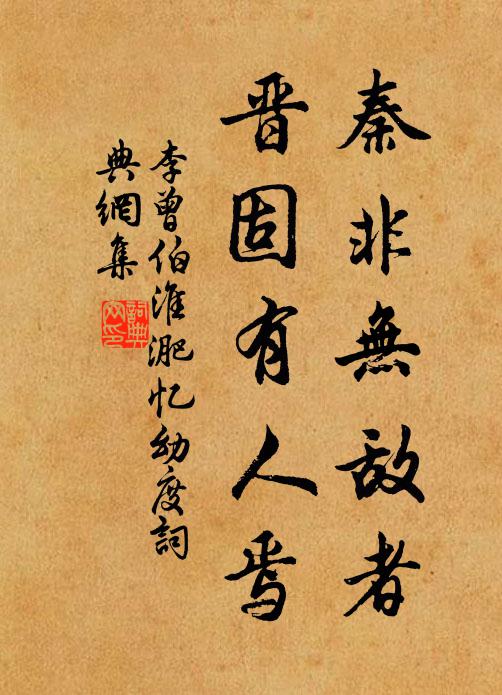 秦非無敌者
晋固有人焉
李曾伯淮淝忆幼度詞
典網集
詞典
网印